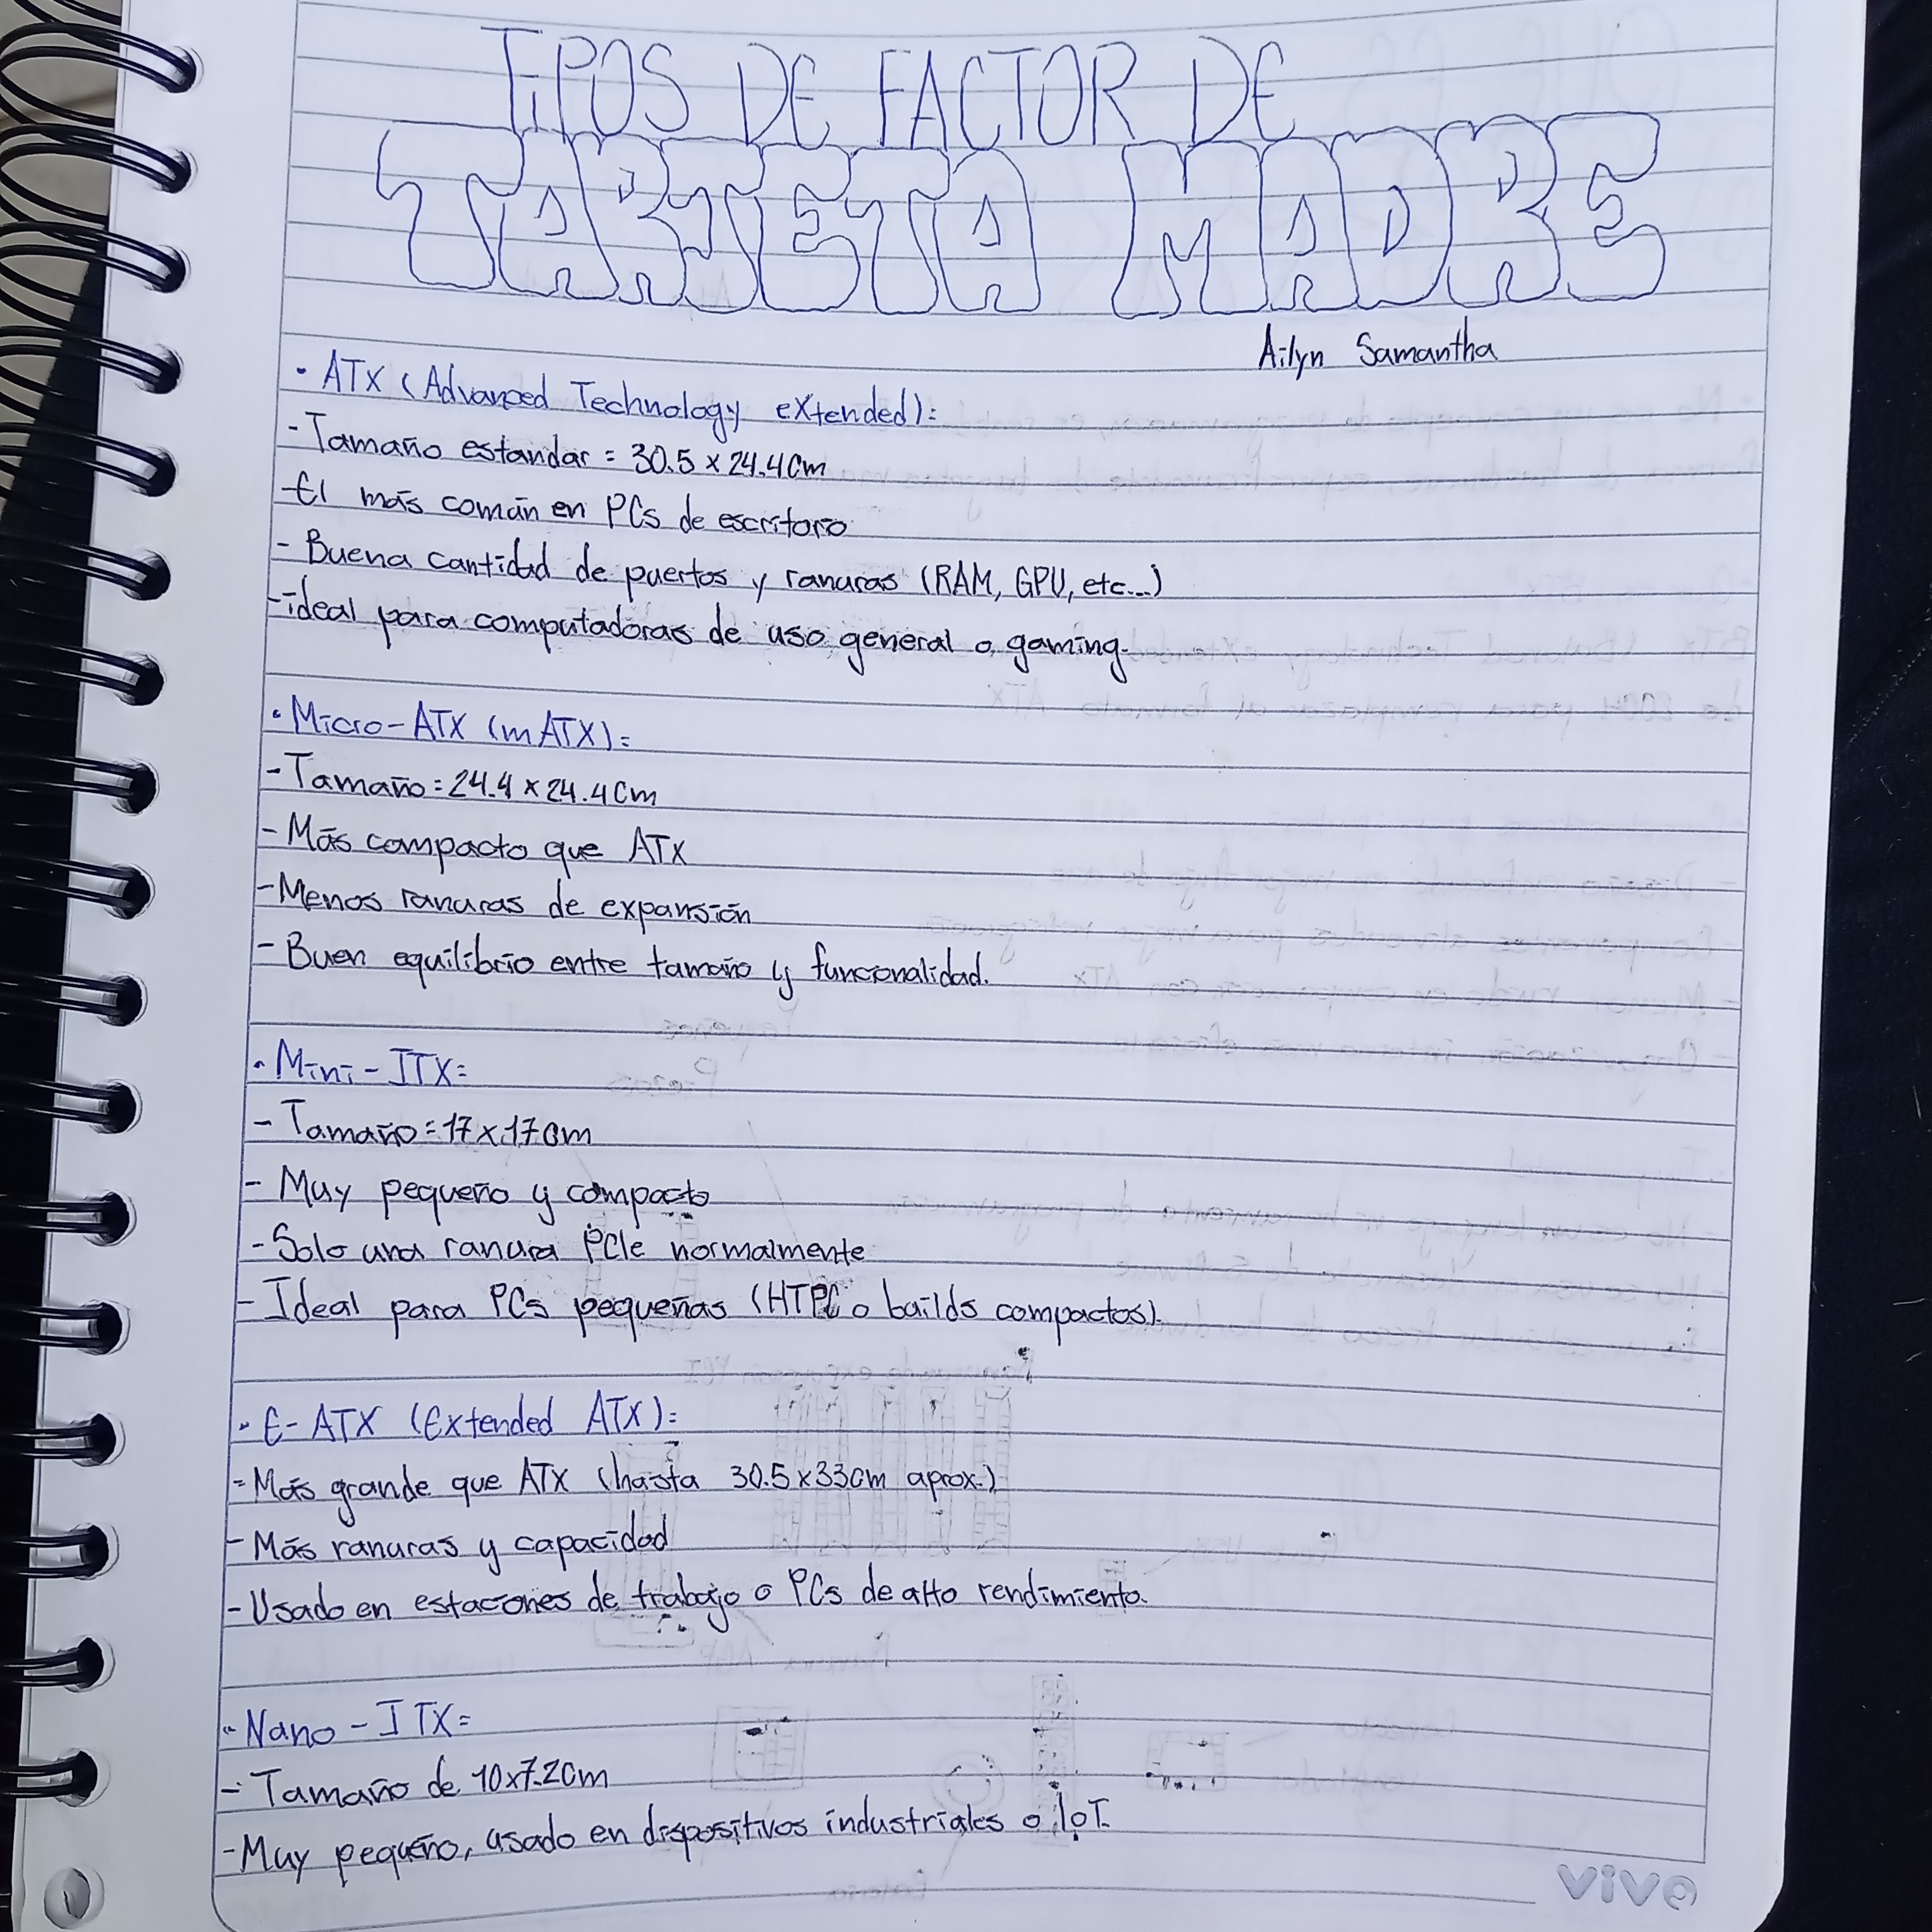 TIPOS DE FACTOR DE
TARJETA MADRE
Ailyn Samantha
• ATX (Advanced Technology eXtended):
- Tamaño estandar = 30.5 x 24.4cm
- El más común en PCs de escritorio
- Buena cantidad de puertos y ranuras (RAM, GPU, etc...)
- ideal para computadoras de uso general o gaming.
• Micro-ATX (mATX):
- Tamaño = 24.4 x 24.4cm
- Más compacto que ATX
- Menos ranuras de expansión
- Buen equilibrio entre tamaño y funcionalidad.
• Mini-ITX:
- Tamaño = 17x17cm
- Muy pequeño y compacto
- Solo una ranura PCIe normalmente
- Ideal para PCs pequeñas (HTPC o builds compactos).
• E-ATX (Extended ATX):
- Más grande que ATX (hasta 30.5x33cm aprox.)
- Más ranuras y capacidad
- Usado en estaciones de trabajo o PCs de alto rendimiento.
• Nano-ITX:
- Tamaño de 10x7.2cm
- Muy pequeño, usado en dispositivos industriales o IoT.
vive